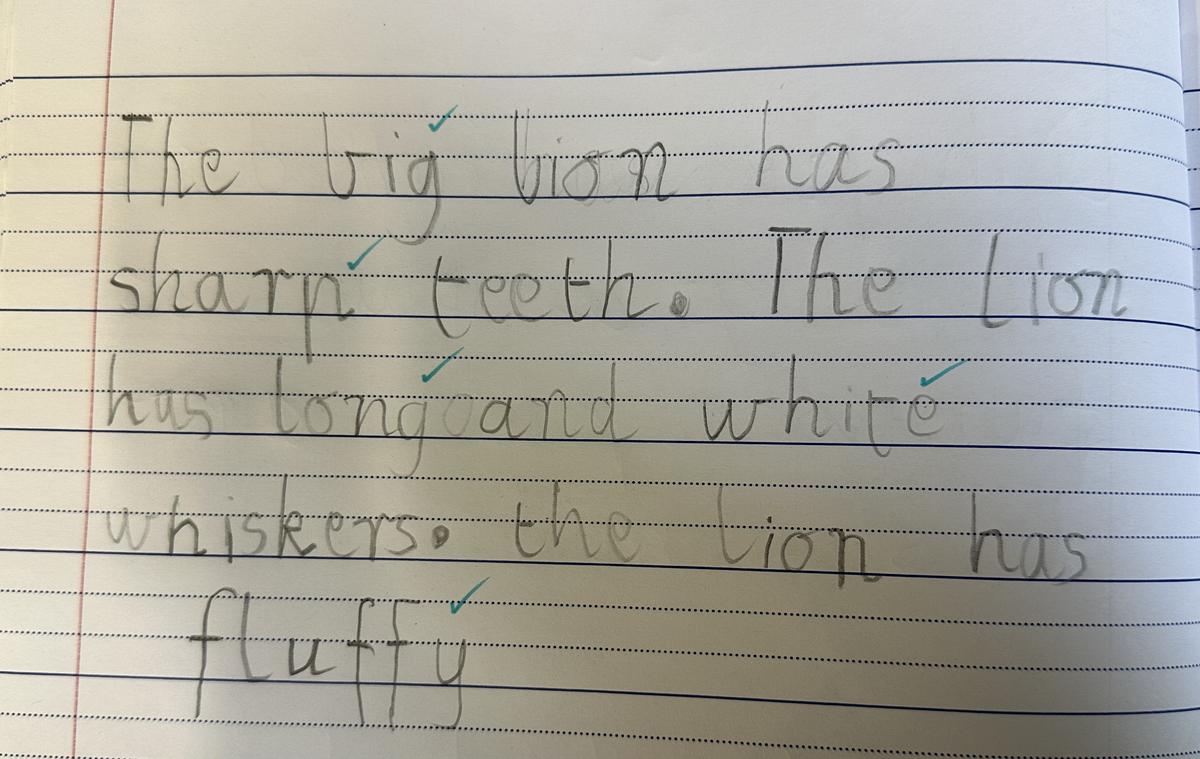 The big lion has
sharp teeth. The lion
has long and white
whiskers. the lion has
fluffy